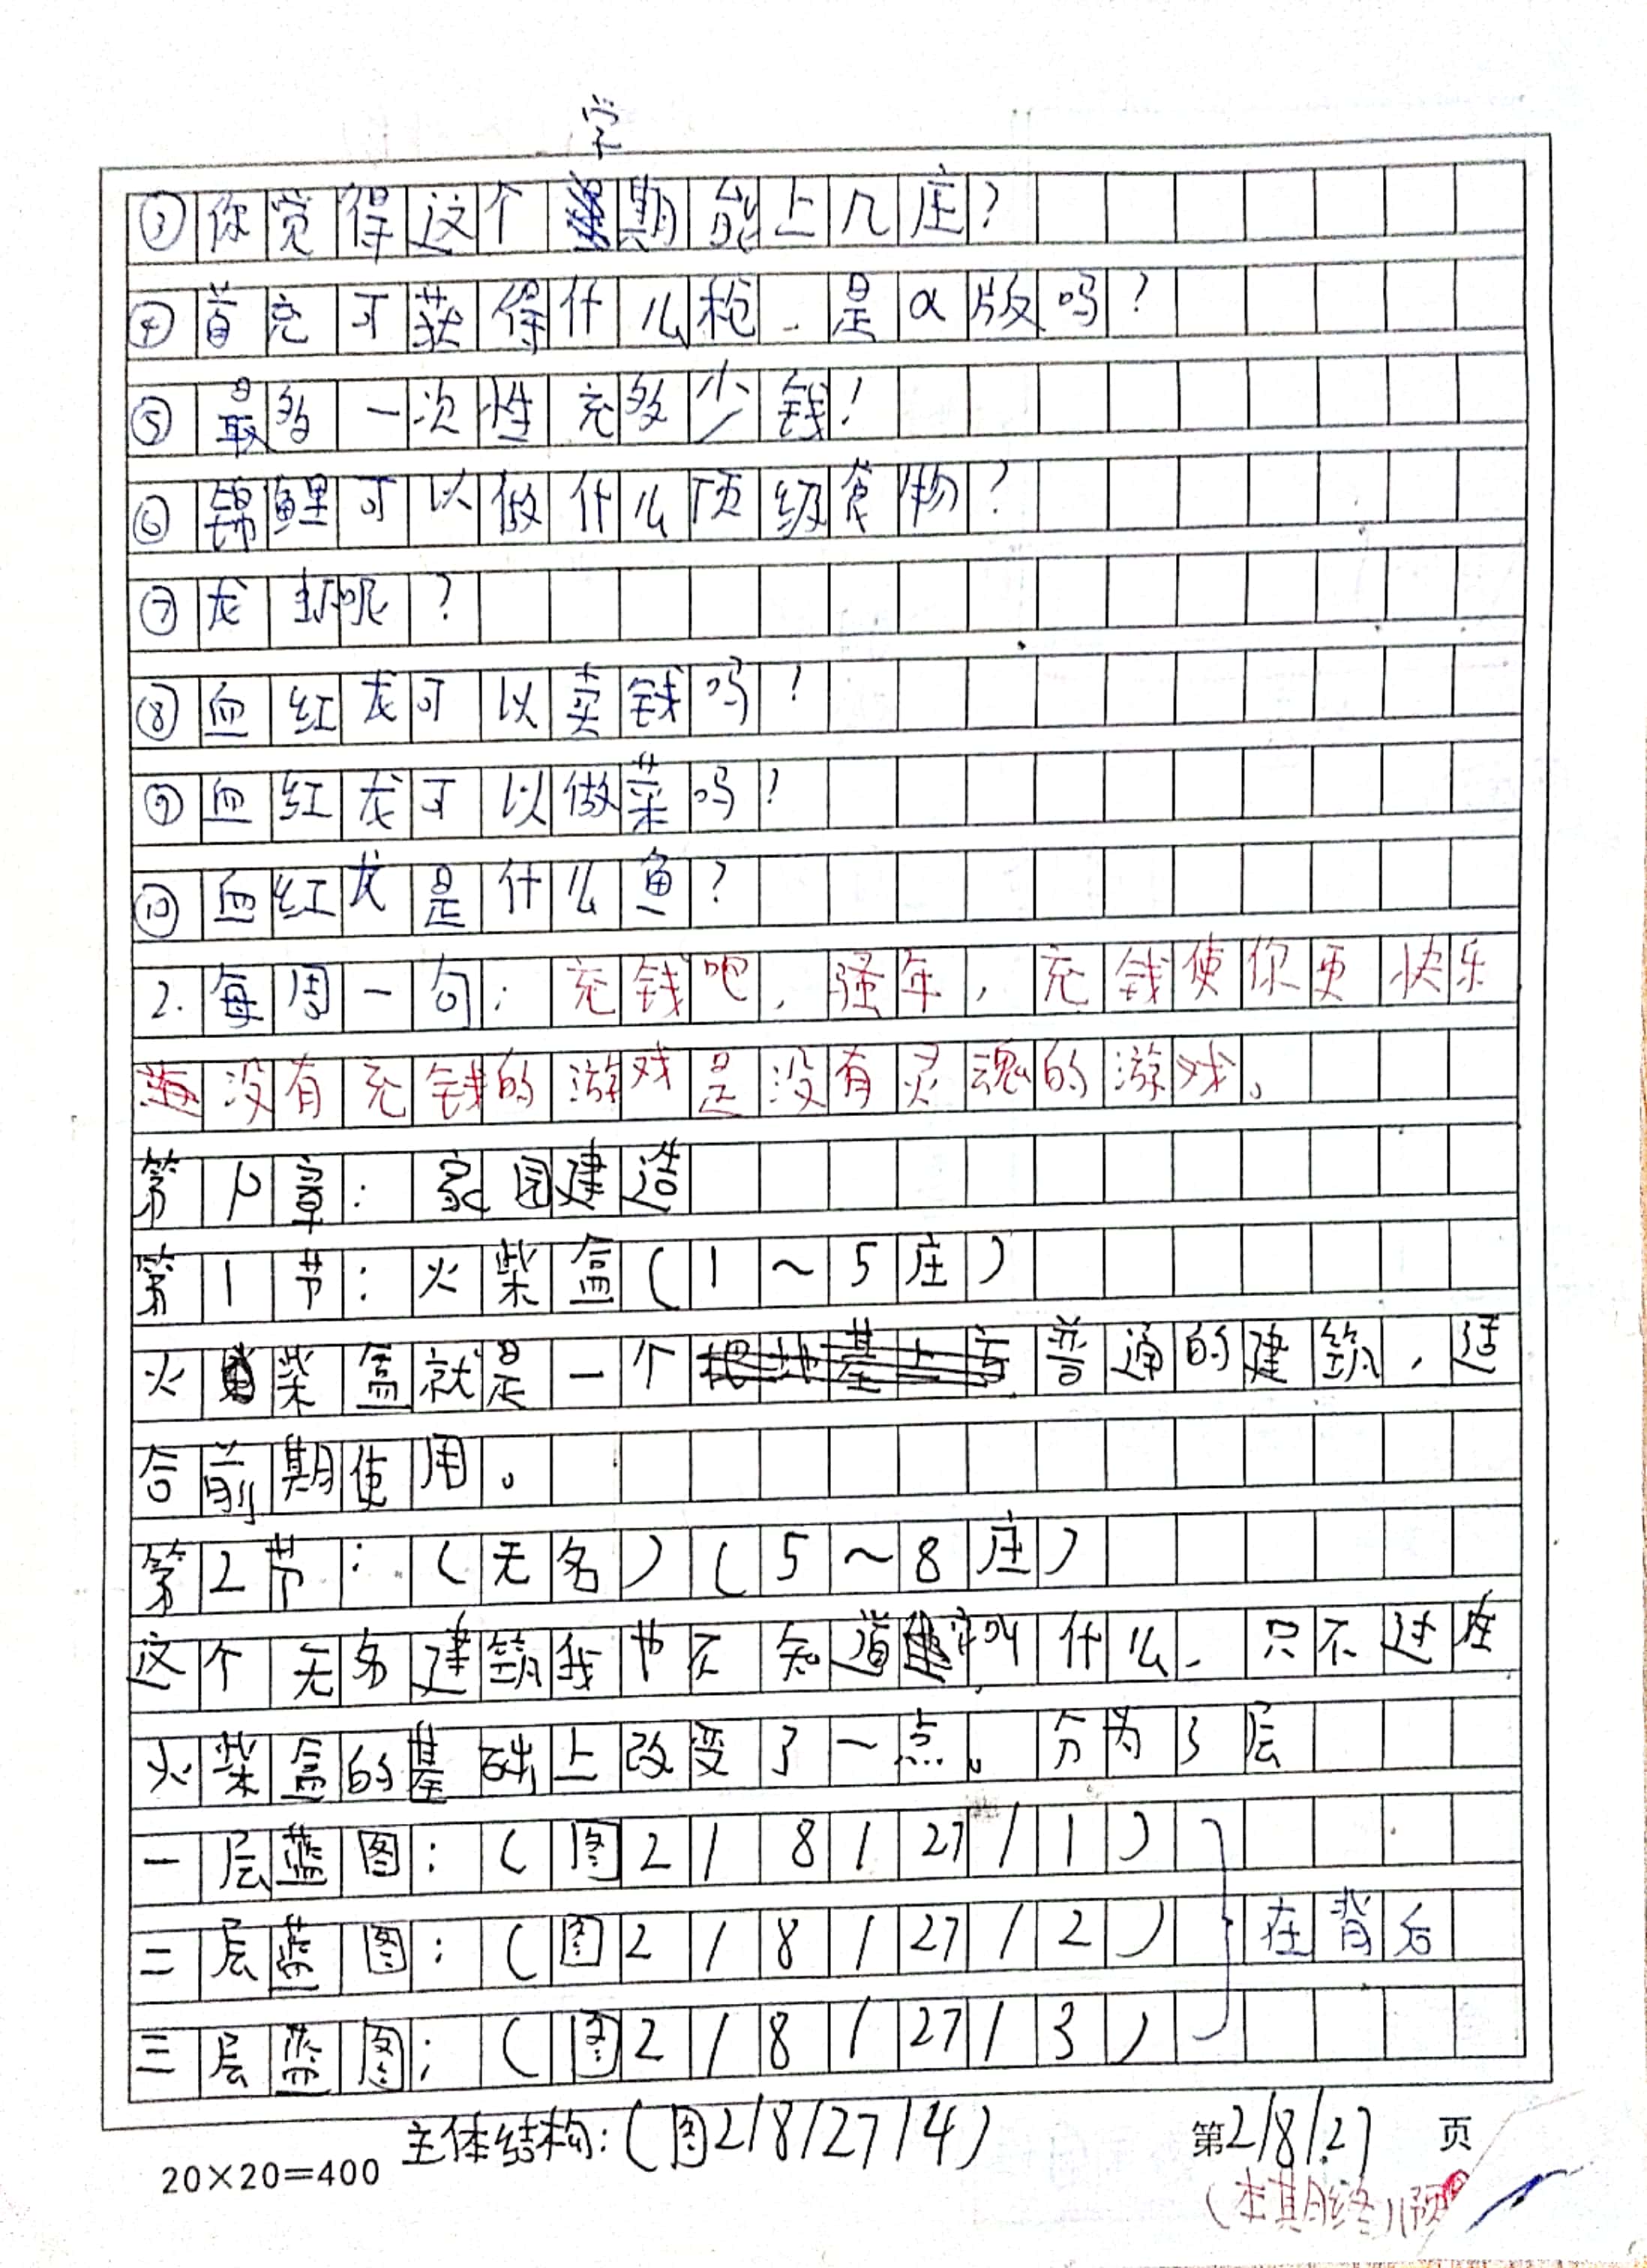 学
③你觉得这个期能上几庄?
④首充可获得什么枪,是α版吗?
⑤最多一次性充多少钱?
⑥锦鲤可以做什么顶级食物?
⑦龙虾呢?
⑧血红龙可以卖钱吗?
⑨血红龙可以做菜吗?
⑩血红龙是什么鱼?
2.每周一句:充钱吧,骚年,充钱使你更快乐
没有充钱的游戏是没有灵魂的游戏。
第章:家园建造
第1节:火柴盒(1~5庄)
火柴盒就是一个把地基上方普通的建筑,适
合前期使用。
第2节:(无名)(5~8庄)
这个无名建筑我也不知道叫什么,只不过在
火柴盒的基础上改变了一点。分为3层
一层蓝图:(图2/8/27/1)
二层蓝图:(图2/8/27/2)在背后
三层蓝图:(图2/8/27/3)
主体结构:(图2/8/27/4)
第2/8/27页
20×20=400
(本期终)